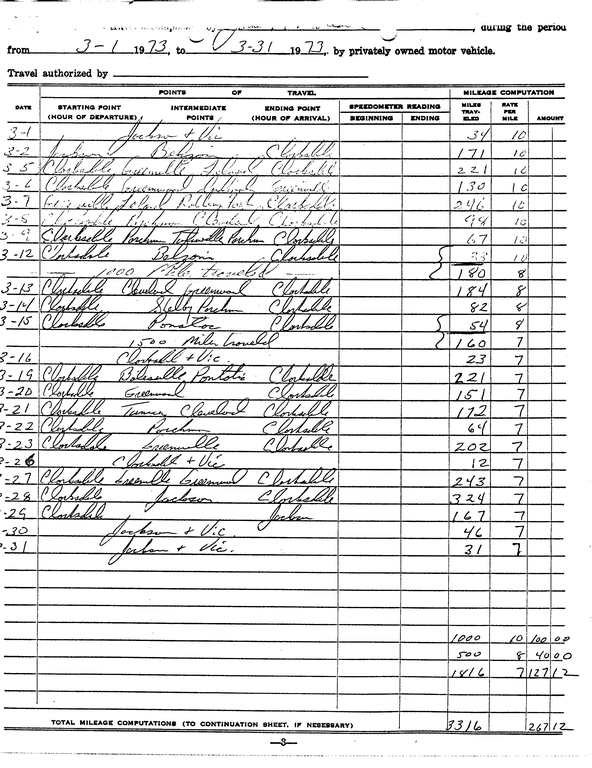 during the period
from 3-1 1973, to 3-31 1973, by privately owned motor vehicle.
Travel authorized by
POINTS OF TRAVEL MILEAGE COMPUTATION
DATE STARTING POINT (HOUR OF DEPARTURE) INTERMEDIATE POINTS ENDING POINT (HOUR OF ARRIVAL) SPEEDOMETER READING BEGINNING ENDING MILES TRAV-ELED RATE PER MILE AMOUNT
3-1 Jackson + Vic 34 10
3-2 Jackson Belzoni Clarksdale 171 10
3-5 Clarksdale Greenville Leland Clarksdale 221 10
3-6 Clarksdale Greenwood Greenville 130 10
3-7 Greenville Leland Clarksdale 246 10
3-8 Clarksdale Parchman Cleveland Clarksdale 98 10
3-9 Clarksdale Parchman Tutwiler Parchman Clarksdale 67 10
3-12 Clarksdale Belzoni Clarksdale 33 10
1000 Miles traveled 180 8
3-13 Clarksdale Cleveland Greenwood Clarksdale 184 8
3-14 Clarksdale Shelby Parchman Clarksdale 82 8
3-15 Clarksdale Pontotoc Clarksdale 54 8
1500 Miles traveled 160 7
3-16 Clarksdale + Vic. 23 7
3-19 Clarksdale Batesville Pontotoc Clarksdale 221 7
3-20 Clarksdale Greenwood Clarksdale 151 7
3-21 Clarksdale Cleveland Clarksdale 172 7
3-22 Clarksdale Parchman Clarksdale 64 7
3-23 Clarksdale Greenville Clarksdale 202 7
3-26 Clarksdale + Vic 12 7
3-27 Clarksdale Greenville Greenwood Clarksdale 243 7
3-28 Clarksdale Jackson Clarksdale 324 7
3-29 Clarksdale Jackson 167 7
3-30 Jackson + Vic. 46 7
3-31 Jackson + Vic. 31 7
1000 10 100 00
500 8 40 00
1816 7 127 12
TOTAL MILEAGE COMPUTATIONS (TO CONTINUATION SHEET, IF NECESSARY) 3316 267 12
—3—